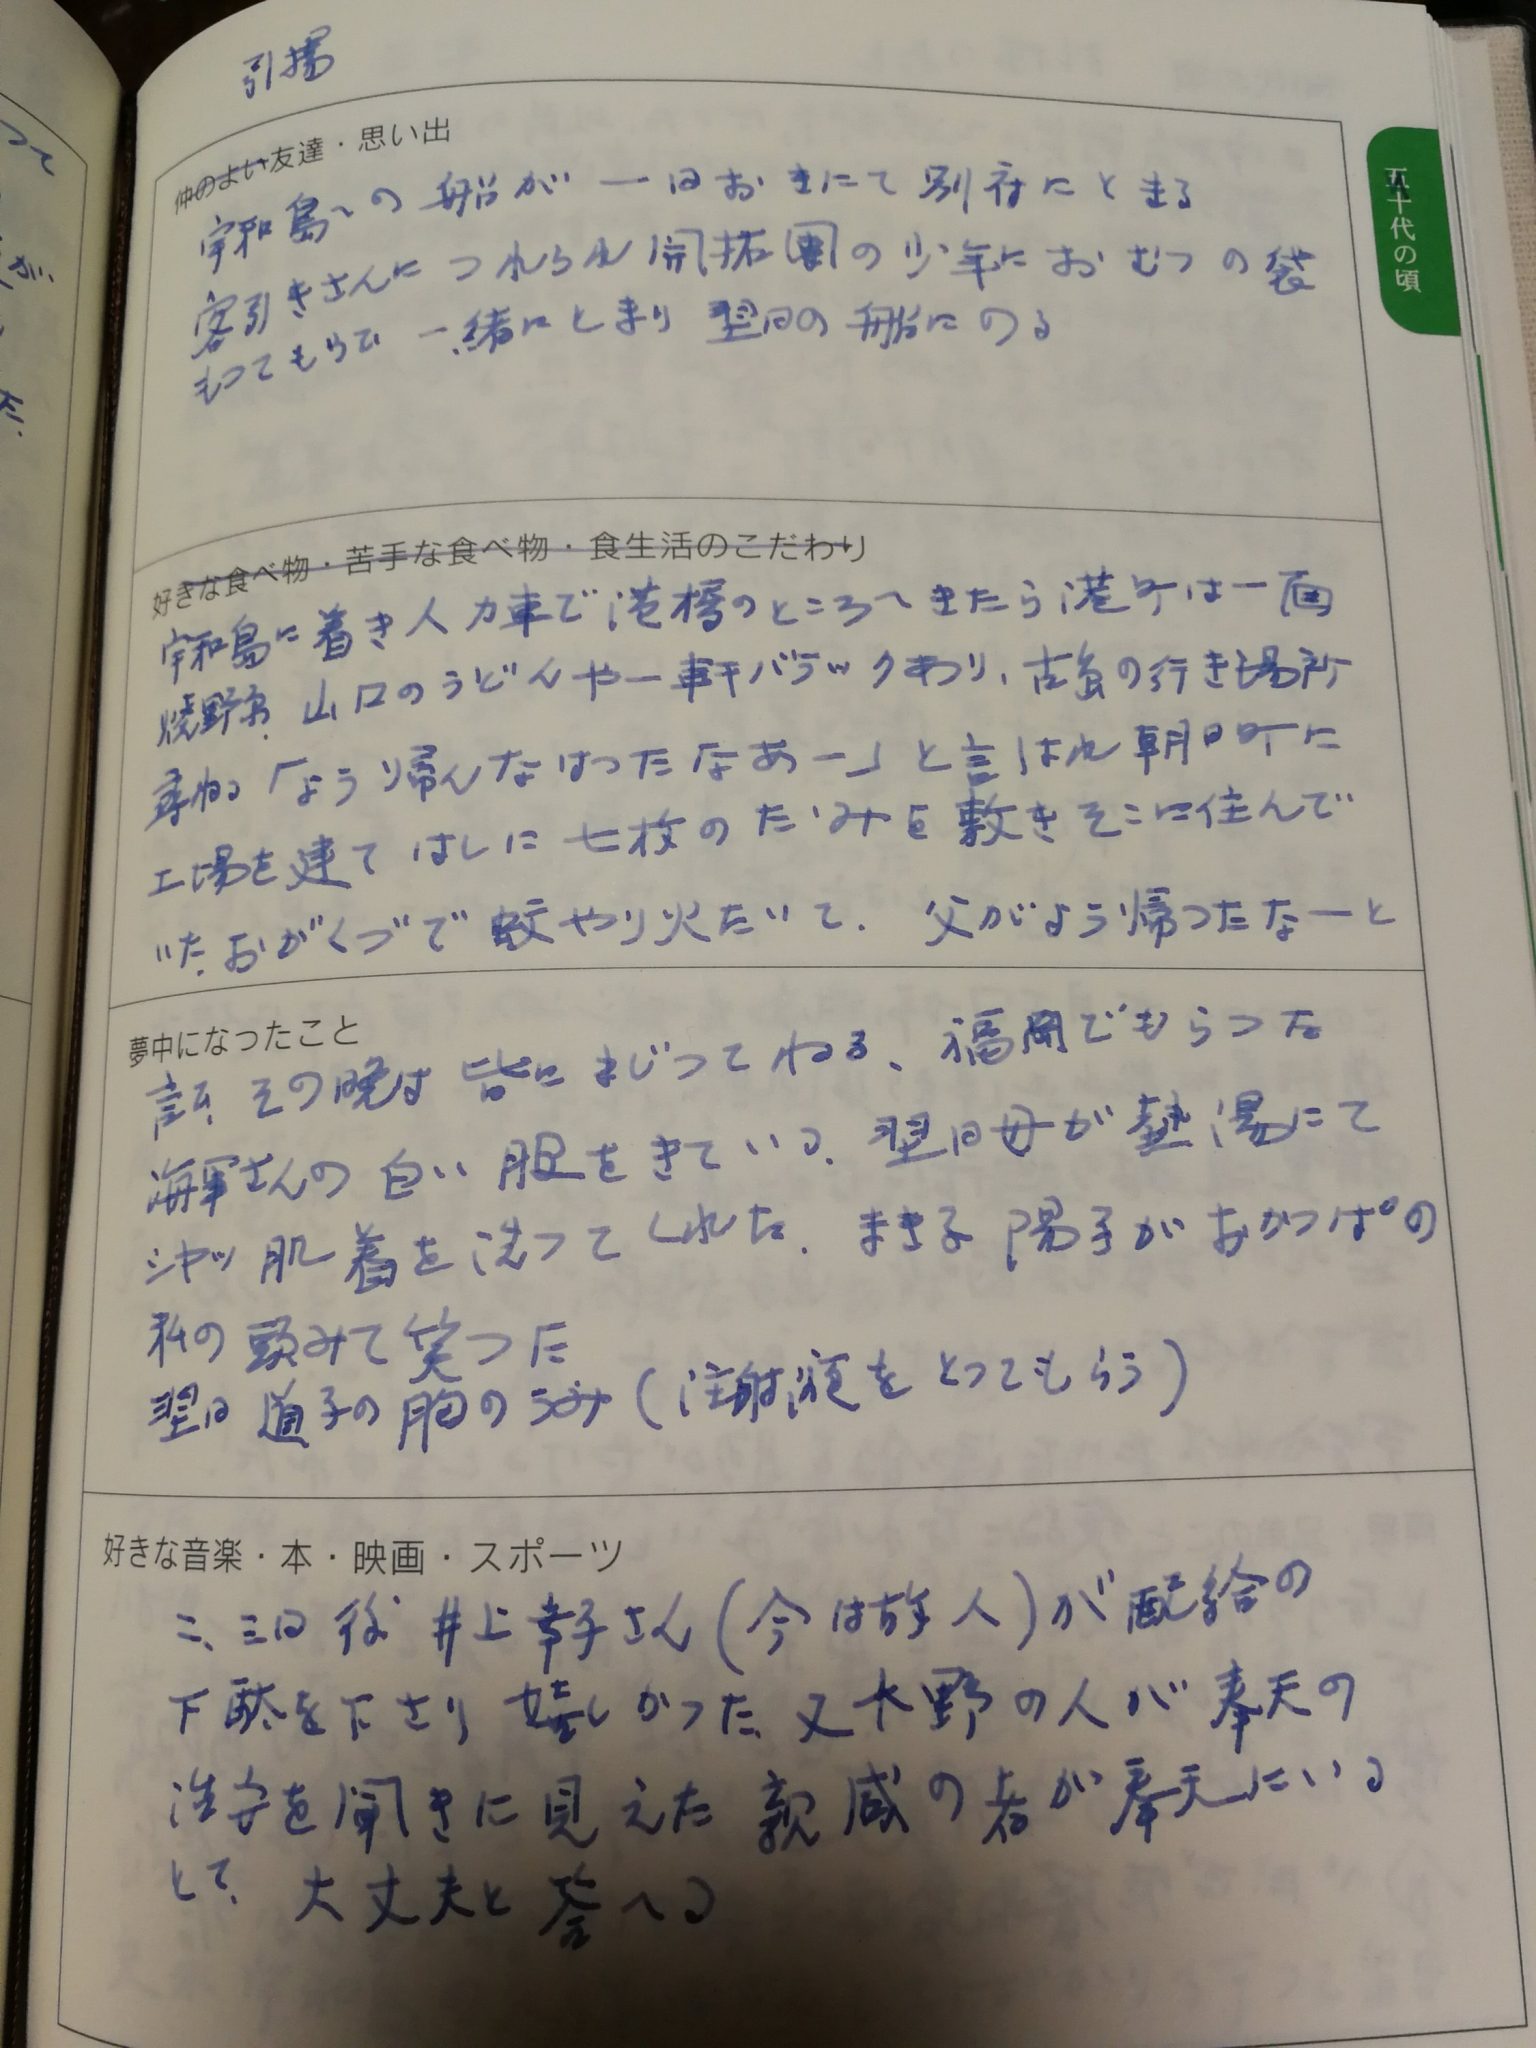 引揚
五十代の頃
仲のよい友達・思い出
宇和島への船が一日おきにて別府にとまる
客引きさんにつれられ開拓團の少年におむつの袋
もつてもらひ一緒にとまり翌日の船にのる
好きな食べ物・苦手な食べ物・食生活のこだわり
宇和島に着き人力車で港橋のところへきたら港町は一面
焼野原、山口のうどんや一軒バラックあり、古谷の行き場所
尋ねる「よう帰んなはつたなあー」と言はれ朝日町に
工場を建てはしに七枚のたゝみを敷きそこに住んで
いた、おがくづで蚊やり火たいて、父がよう帰つたなーと
夢中になったこと
言ふ、その晩は皆にまじつてねる、福岡でもらつた
海軍さんの白い服をきている、翌日母が熱湯にて
シャツ肌着を洗つてくれた、まき子陽子がおかつぱの
私の頭みて笑つた
翌日道子の胸のうみ(注射液をとつてもらう)
好きな音楽・本・映画・スポーツ
二、三日後井上幸子さん(今は故人)が配給の
下駄を下さり嬉しかつた、又水野の人が奉天の
治安を聞きに見えた親戚の者が奉天にいる
とて、大丈夫と答へる